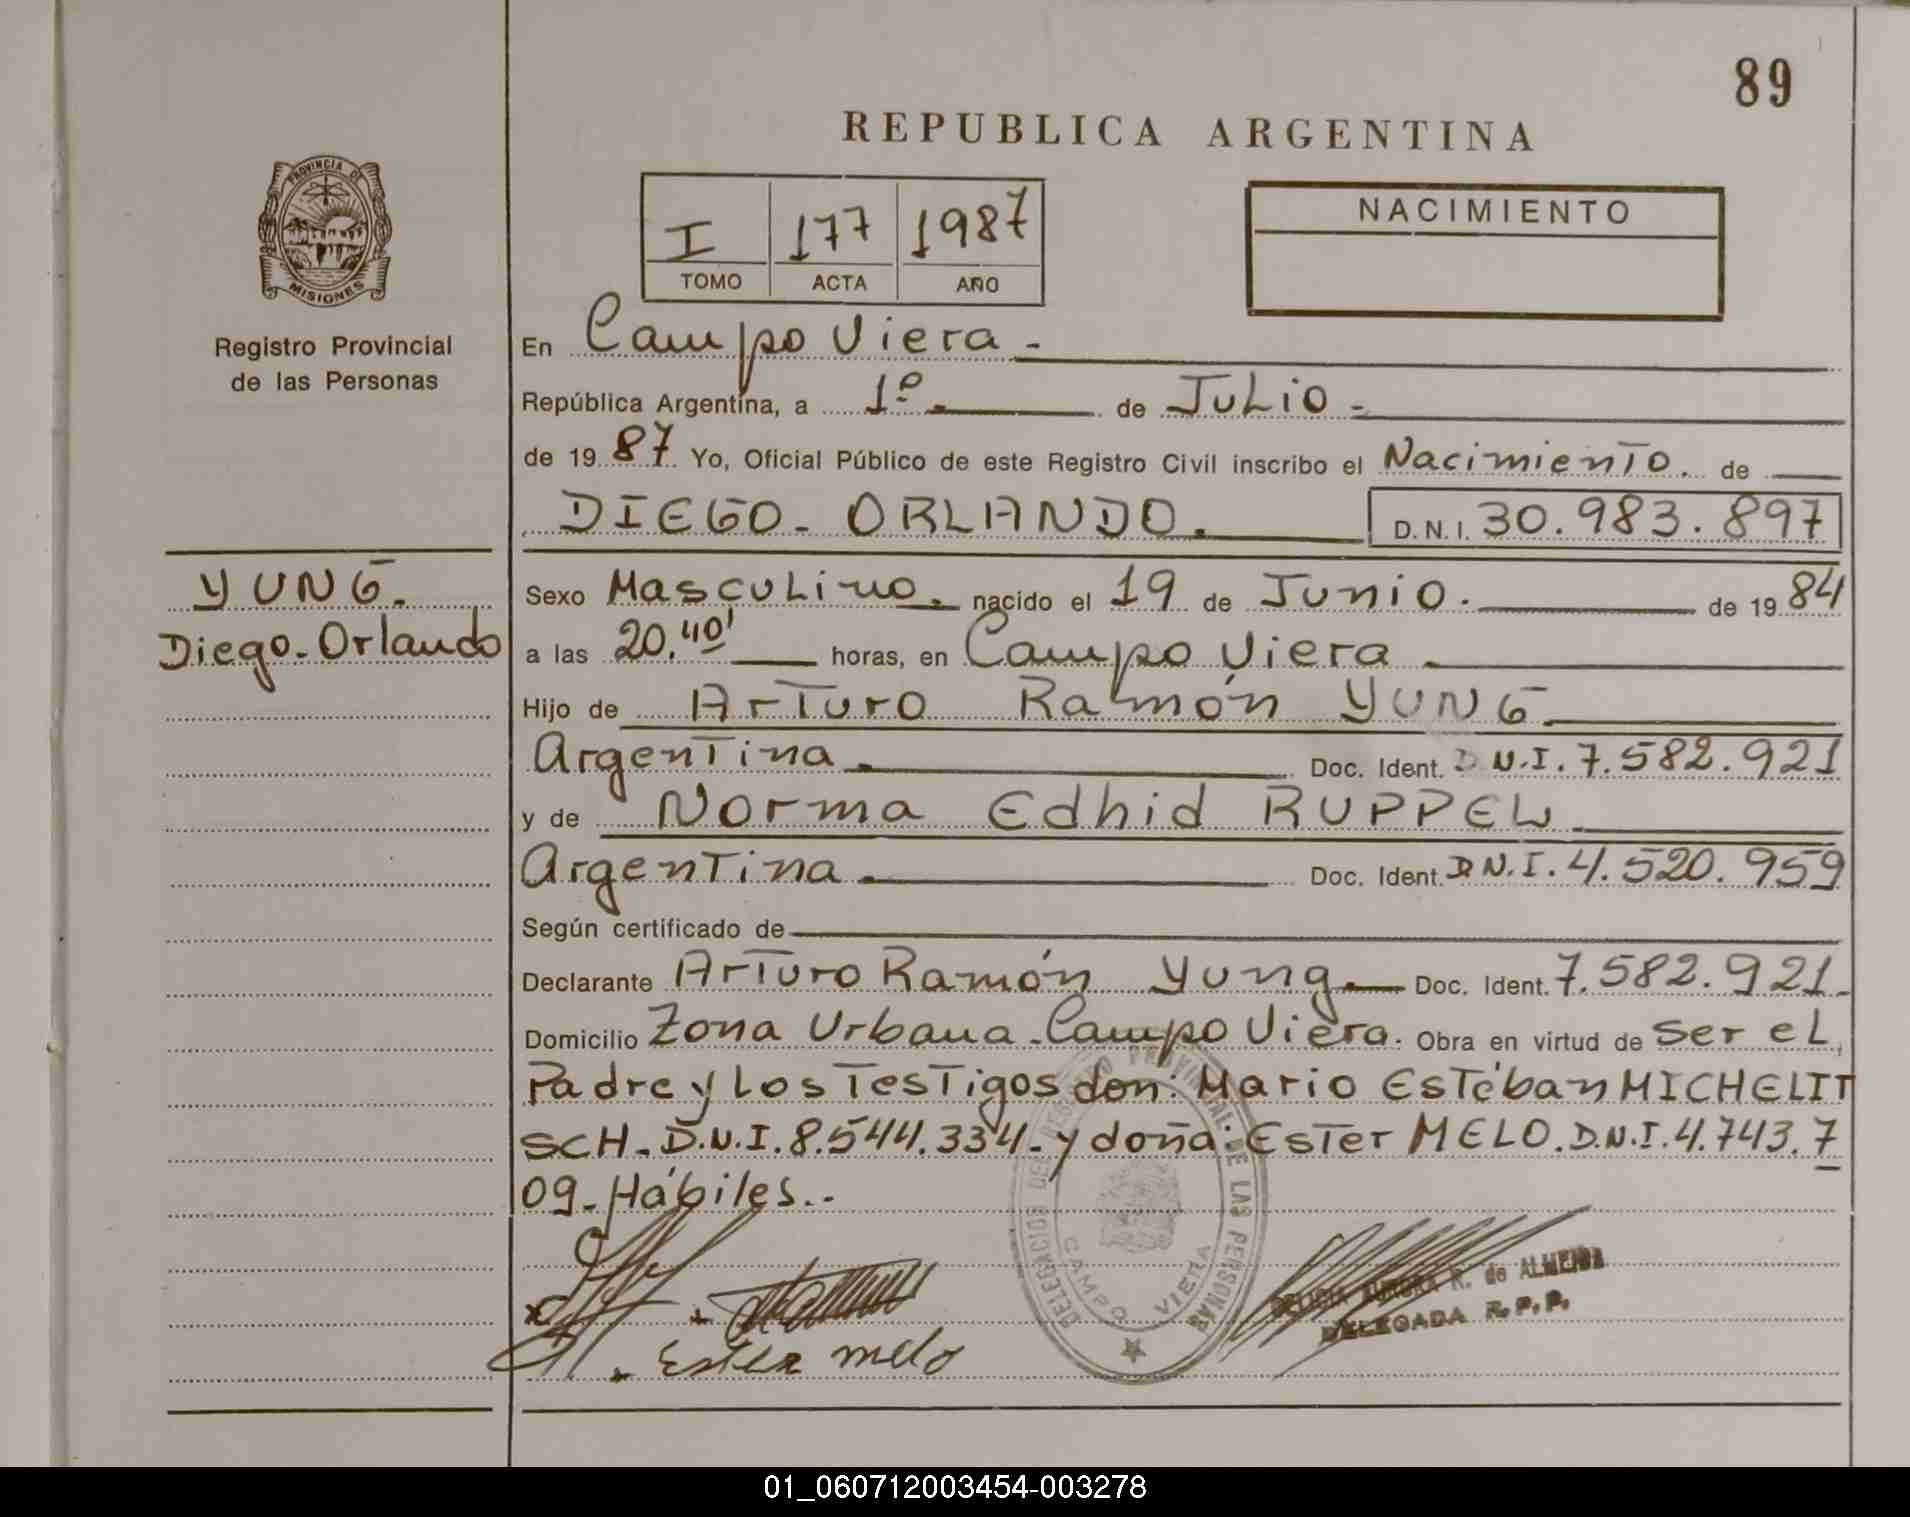 89
REPUBLICA ARGENTINA
PROVINCIA DE
MISIONES
Registro Provincial
de las Personas
I 177 1987
TOMO ACTA AÑO
NACIMIENTO
En Campo Viera.-
República Argentina, a 1º.- de Julio.-
de 1987. Yo, Oficial Público de este Registro Civil inscribo el Nacimiento. de
DIEGO- ORLANDO. D.N.I. 30.983.897
YUNG.
Diego-Orlando
Sexo Masculino. nacido el 19 de Junio. de 1984
a las 20.40' horas, en Campo Viera
Hijo de Arturo Ramón YUNG
Argentina. Doc. Ident. D.N.I. 7.582.921
y de Norma Edhid RUPPEL
Argentina. Doc. Ident. D.N.I. 4.520.959
Según certificado de
Declarante Arturo Ramón Yung. Doc. Ident. 7.582.921.
Domicilio Zona Urbana-Campo Viera. Obra en virtud de Ser el
Padre y los Testigos don: Mario Estéban MICHELIT
SCH- D.N.I. 8.544.334- y doña: Ester MELO. D.N.I. 4.743.7
09- Hábiles.-
DELEGACION DEL REGISTRO PROVINCIAL DE LAS PERSONAS
CAMPO VIERA
Ester melo
DELICIA AURORA R. de ALMEIDA
DELEGADA R.P.P.
01_060712003454-003278